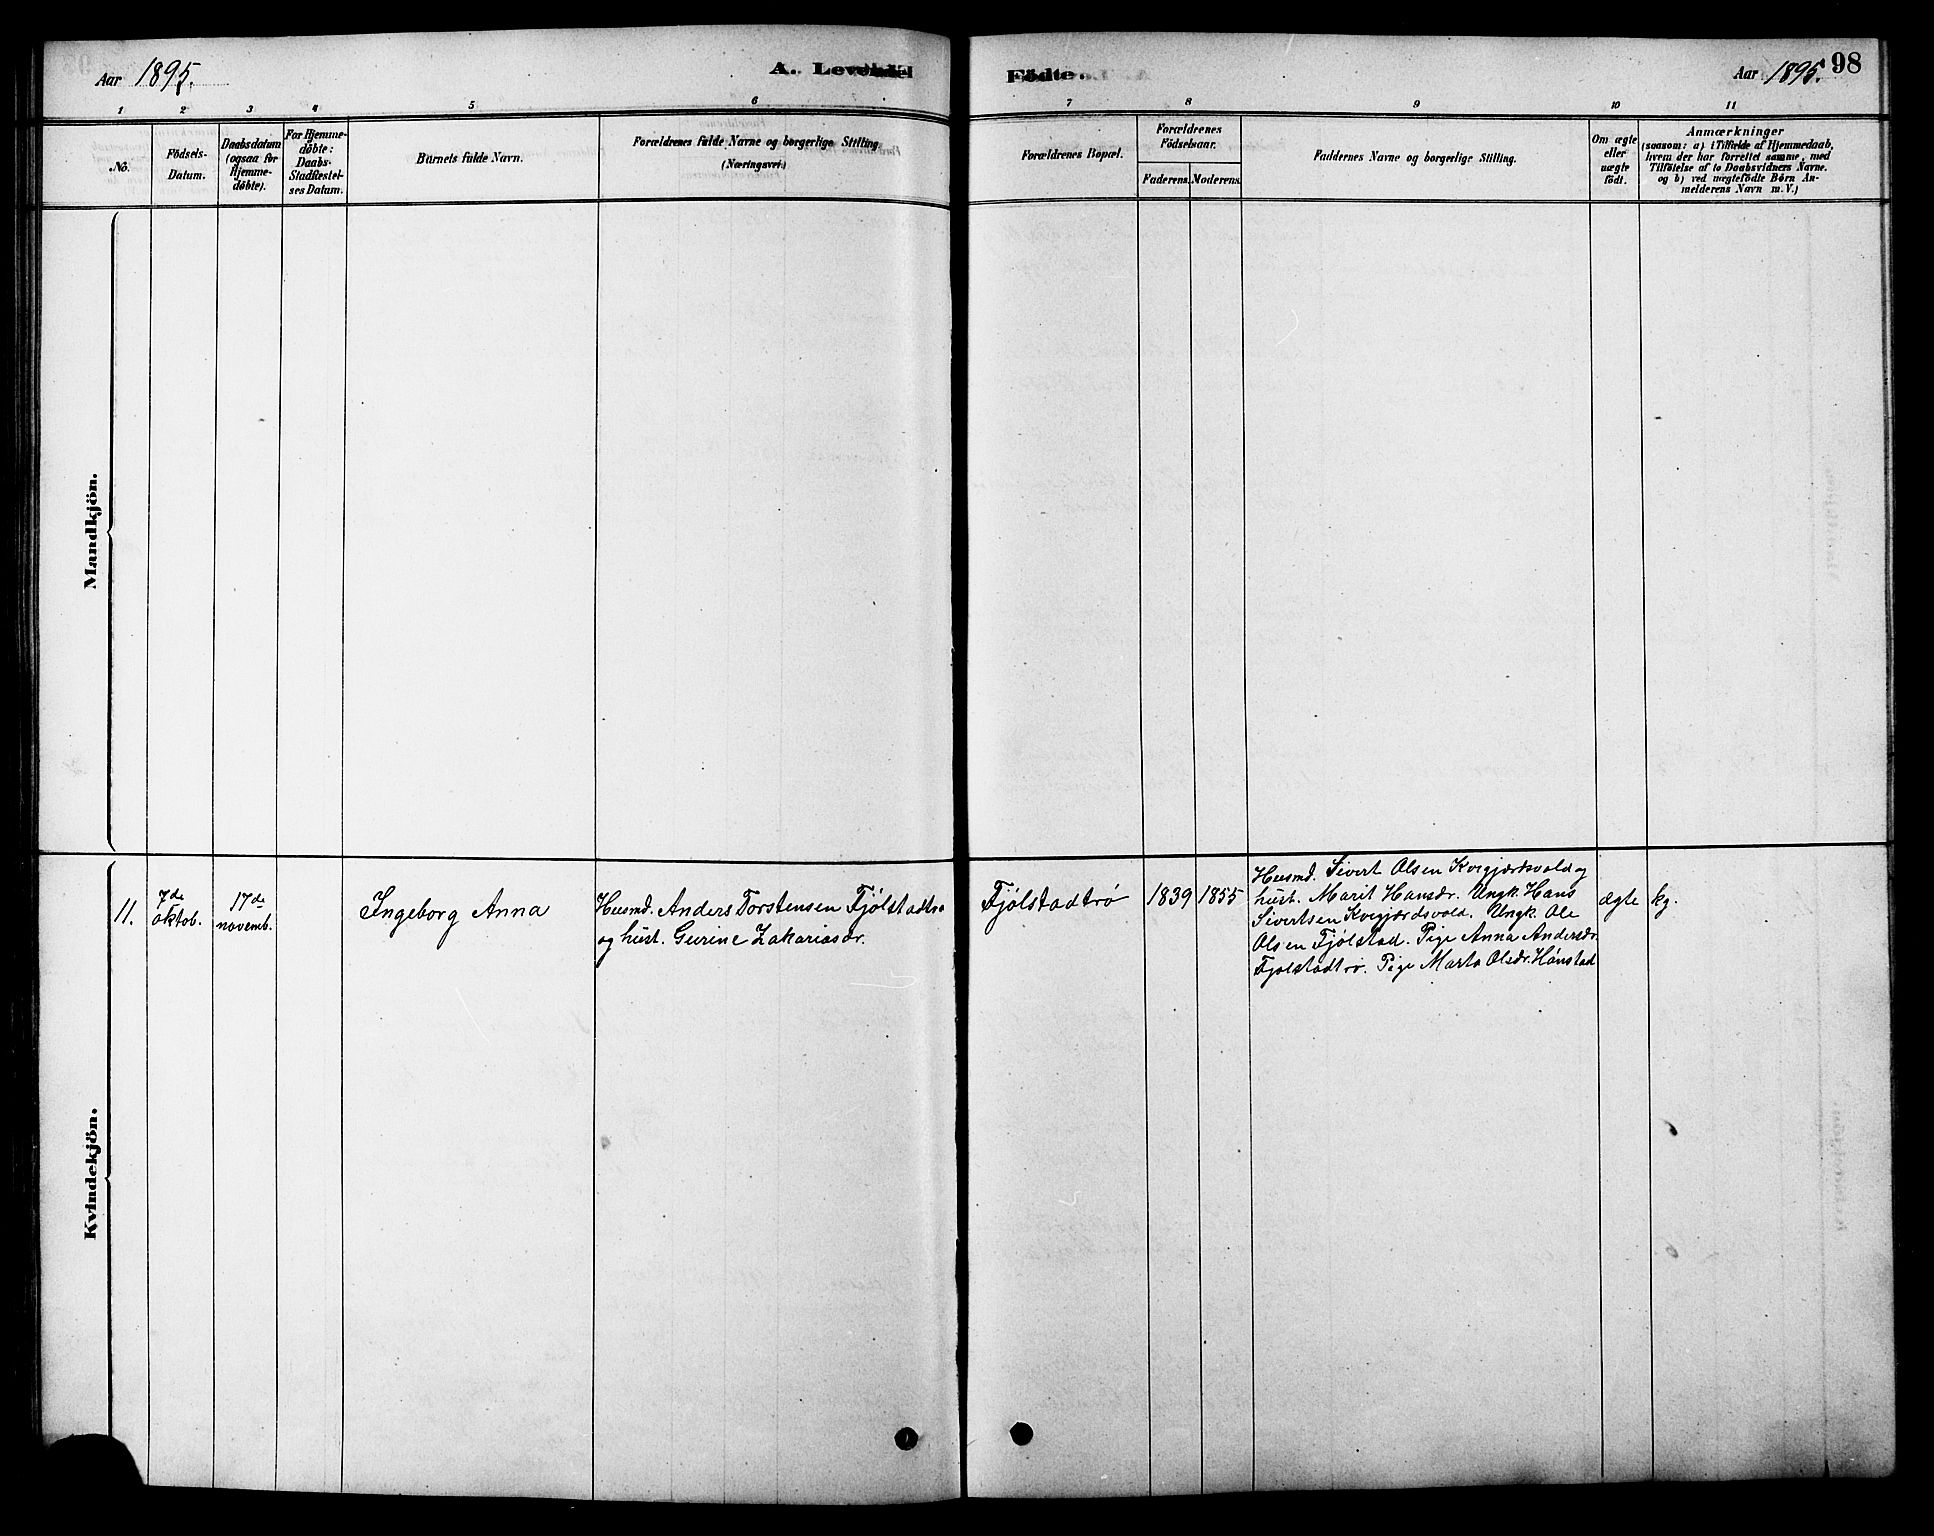 Aar 1895.
A. Levende
Födte.
Aar 1895.
98
1 2 3 4 5 6 7 8 9 10 11
No.
Födsels-
Datum.
Daabsdatum
(ogsaa for
Hjemme-
döbte).
For Hjemme-
döbte:
Daabs-
Stadfæstel-
ses Datum.
Barnets fulde Navn.
Forældrenes fulde Navne og borgerlige Stilling.
(Næringsvei.)
Forældrenes Bopæl.
Forældrenes
Födselsaar.
Faderens.
Moderens.
Faddernes Navne og borgerlige Stilling.
Om ægte
eller
uægte
født.
Anmærkninger
(saasom: a) i Tilfælde af Hjemmedaab,
hvem der har forrettet samme, med
Tilföielse af to Daabsvidners Navne.
og b) ved uægtefödte Börn An-
melderens Navn m. V.)
Mandkjön.
Kvindekjön.
11.
7de
oktob.
17de
novemb.
Ingeborg Anna
Husmd. Anders Torstensen Fjölstadtrø
og hust. Gurine Zakariasdr.
Fjölstadtrø
1839
1855
Husmd. Sivert Olsen Kvigjærdsvold og
hust. Marit Hansdr. Ungk. Hans
Sivertsen Kvigjærdsvold. Ungk. Ole
Olsen Fjölstad. Pige Anna Andersdr.
Fjolstadtrø. Pige Marta Olsdr. Hönstad
ægte
kg.